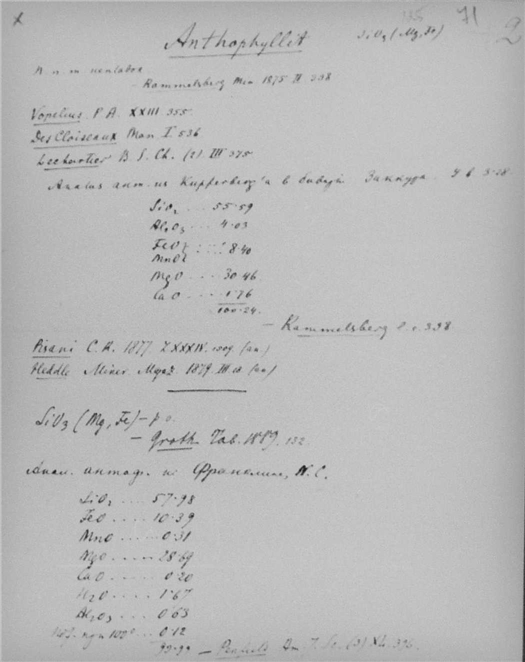 71
2
Anthophyllit SiO3 (Mg, Fe)
Rammelsberg Min 1875 II 338
Vopelius P. A. XXIII 355
DesCloiseaux Man I 536
Lechartier B. S. Ch. (2) III 375
Анализ ант. из Kupferberg'a в
SiO2 ... 55.59
Al2O3 ... 4.03
FeO
MnO ... 8.40
MgO ... 30.46
CaO ... 1.76
100.24
— Rammelsberg l. c. 338
Pisani C. R. 1877 LXXXIV. 1509. (an.)
Heddle Miner. Magaz 1879. III. (an)
SiO3 (Mg, Fe) —
— Groth Tab. 1889. 132
Анал. антоф. из Франклин, N. C.
SiO2 .... 57.98
FeO .... 10.39
MnO .... 0.31
MgO .... 28.69
CaO .... 0.20
H2O .... 1.67
Al2O3 ... 0.63
100° ... 0.12
99.99 — Penfield XL. 396